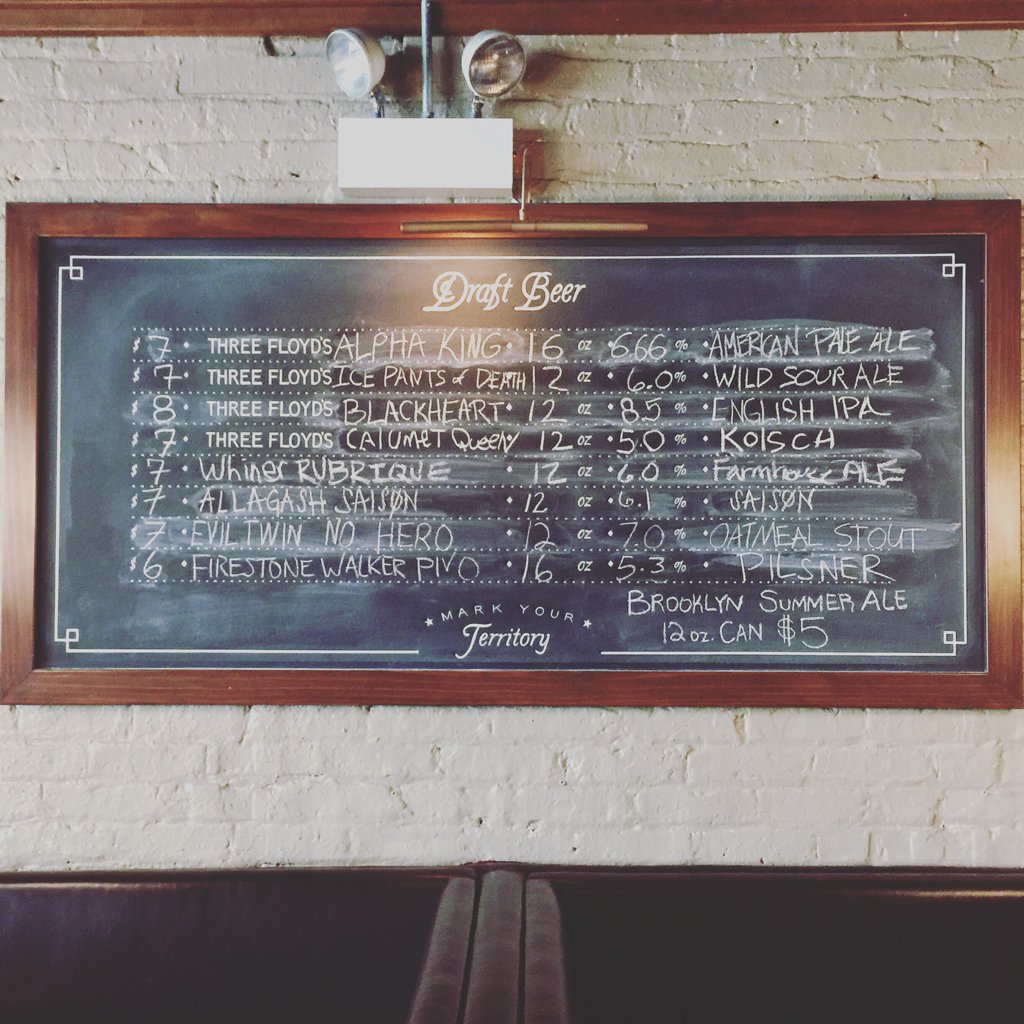 Draft Beer
$ 7 • THREE FLOYD'S ALPHA KING • 16 oz • 6.66 % • AMERICAN PALE ALE
$ 7 • THREE FLOYD'S ICE PANTS of DEATH 12 oz • 6.0 % • WILD SOUR ALE
$ 8 • THREE FLOYD'S BLACKHEART • 12 oz • 8.5 % • ENGLISH IPA
$ 7 • THREE FLOYD'S CALUMET Queen 12 oz • 5.0 % • KOlSCH
$ 7 • Whiner RUBRIQUE • 12 oz • 6.0 % • Farmhouse ALE
$ 7 • ALLAGASH SAISØN • 12 oz • 6.1 % • SAISØN
$ 7 • EVIL TWIN NO HERO • 12 oz • 7.0 % • OATMEAL STOUT
$ 6 • FIRESTONE WALKER PIVO • 16 oz • 5.3 % • PILSNER
BROOKLYN SUMMER ALE
12 oz. CAN $5
★ MARK YOUR ★
Territory